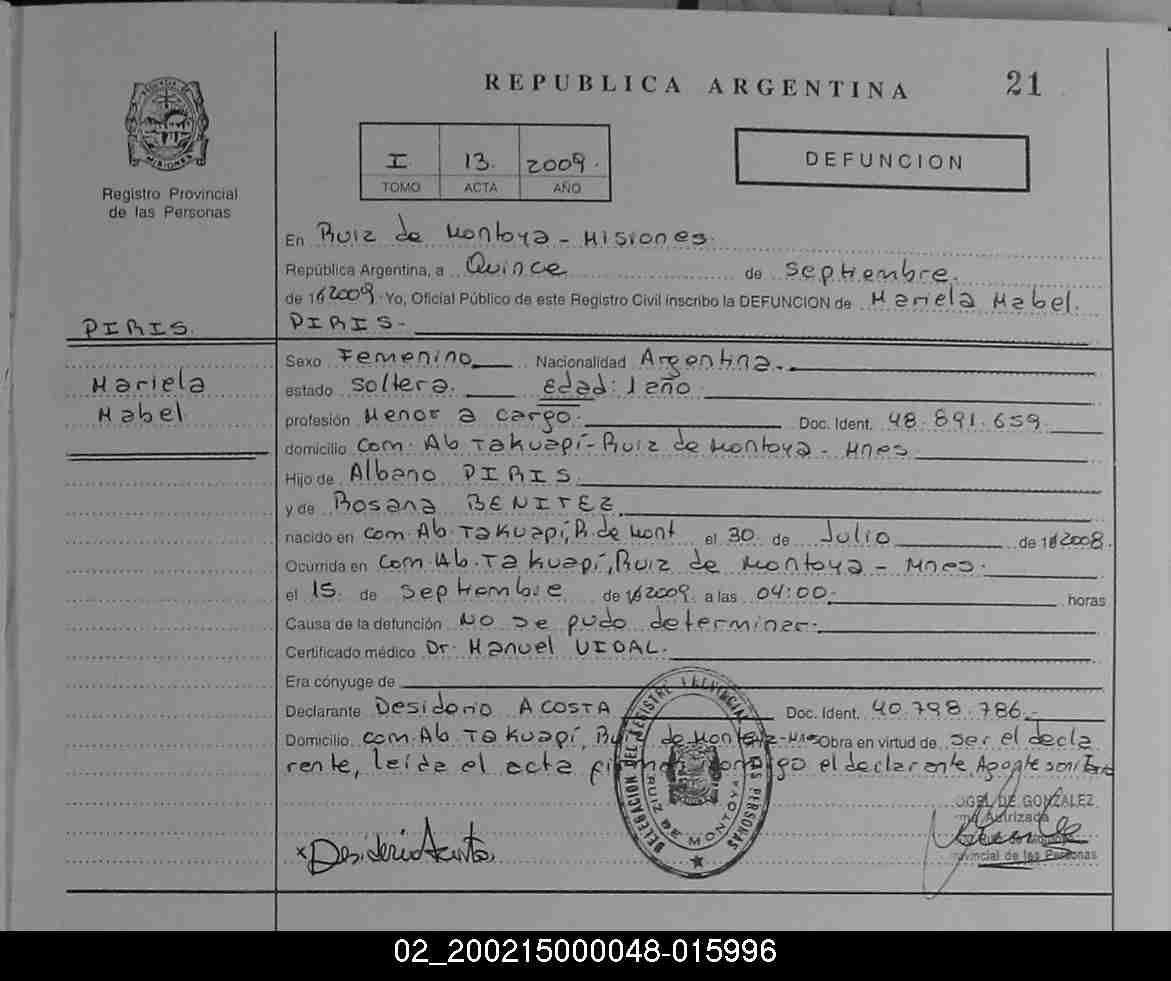 REPUBLICA ARGENTINA 21
I 13. 2009.
TOMO ACTA AÑO
DEFUNCION
MISIONES
Registro Provincial
de las Personas
En Ruiz de Montoya - Misiones.
República Argentina, a Quince de Septiembre.
de 2009 Yo, Oficial Público de este Registro Civil inscribo la DEFUNCION de Mariela Mabel.
PIRIS.
PIRIS.-
Mariela
Mabel
Sexo Femenino Nacionalidad Argentina.
estado soltera. Edad: 1 año.
profesión Menor a cargo. Doc. Ident. 48.891.659.
domicilio Com. Ab. Takuapí-Ruiz de Montoya - Mnes.
Hijo de Albano PIRIS.
y de Rosana BENITEZ.
nacido en Com. Ab. Takuapí, R. de Mont el 30. de Julio de 2008.
Ocurrida en Com. Ab. Takuapí, Ruiz de Montoya - Mnes.
el 15. de Septiembre de 2009. a las 04:00. horas
Causa de la defunción No se pudo determinar.
Certificado médico Dr. Manuel VIDAL.
Era cónyuge de
Declarante Desiderio ACOSTA Doc. Ident. 40.798.786.-
Domicilio com. Ab Takuapí, Ruiz de Montoya-Mnes Obra en virtud de ser el decla
rente, leída el acta conmigo el declarante,
DELEGACION DEL REGISTRO PROVINCIAL DE LAS PERSONAS
RUIZ DE MONTOYA
DE GONZALEZ
Autorizada
Provincial de las Personas
x Desiderio Acosta
02_200215000048-015996